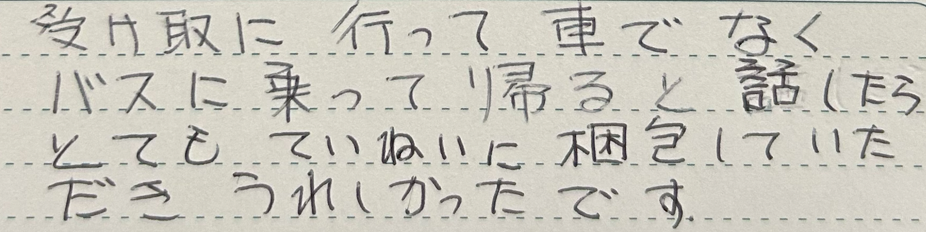 受け取に行って車でなく
バスに乗って帰ると話したら
とてもていねいに梱包していた
だきうれしかったです.